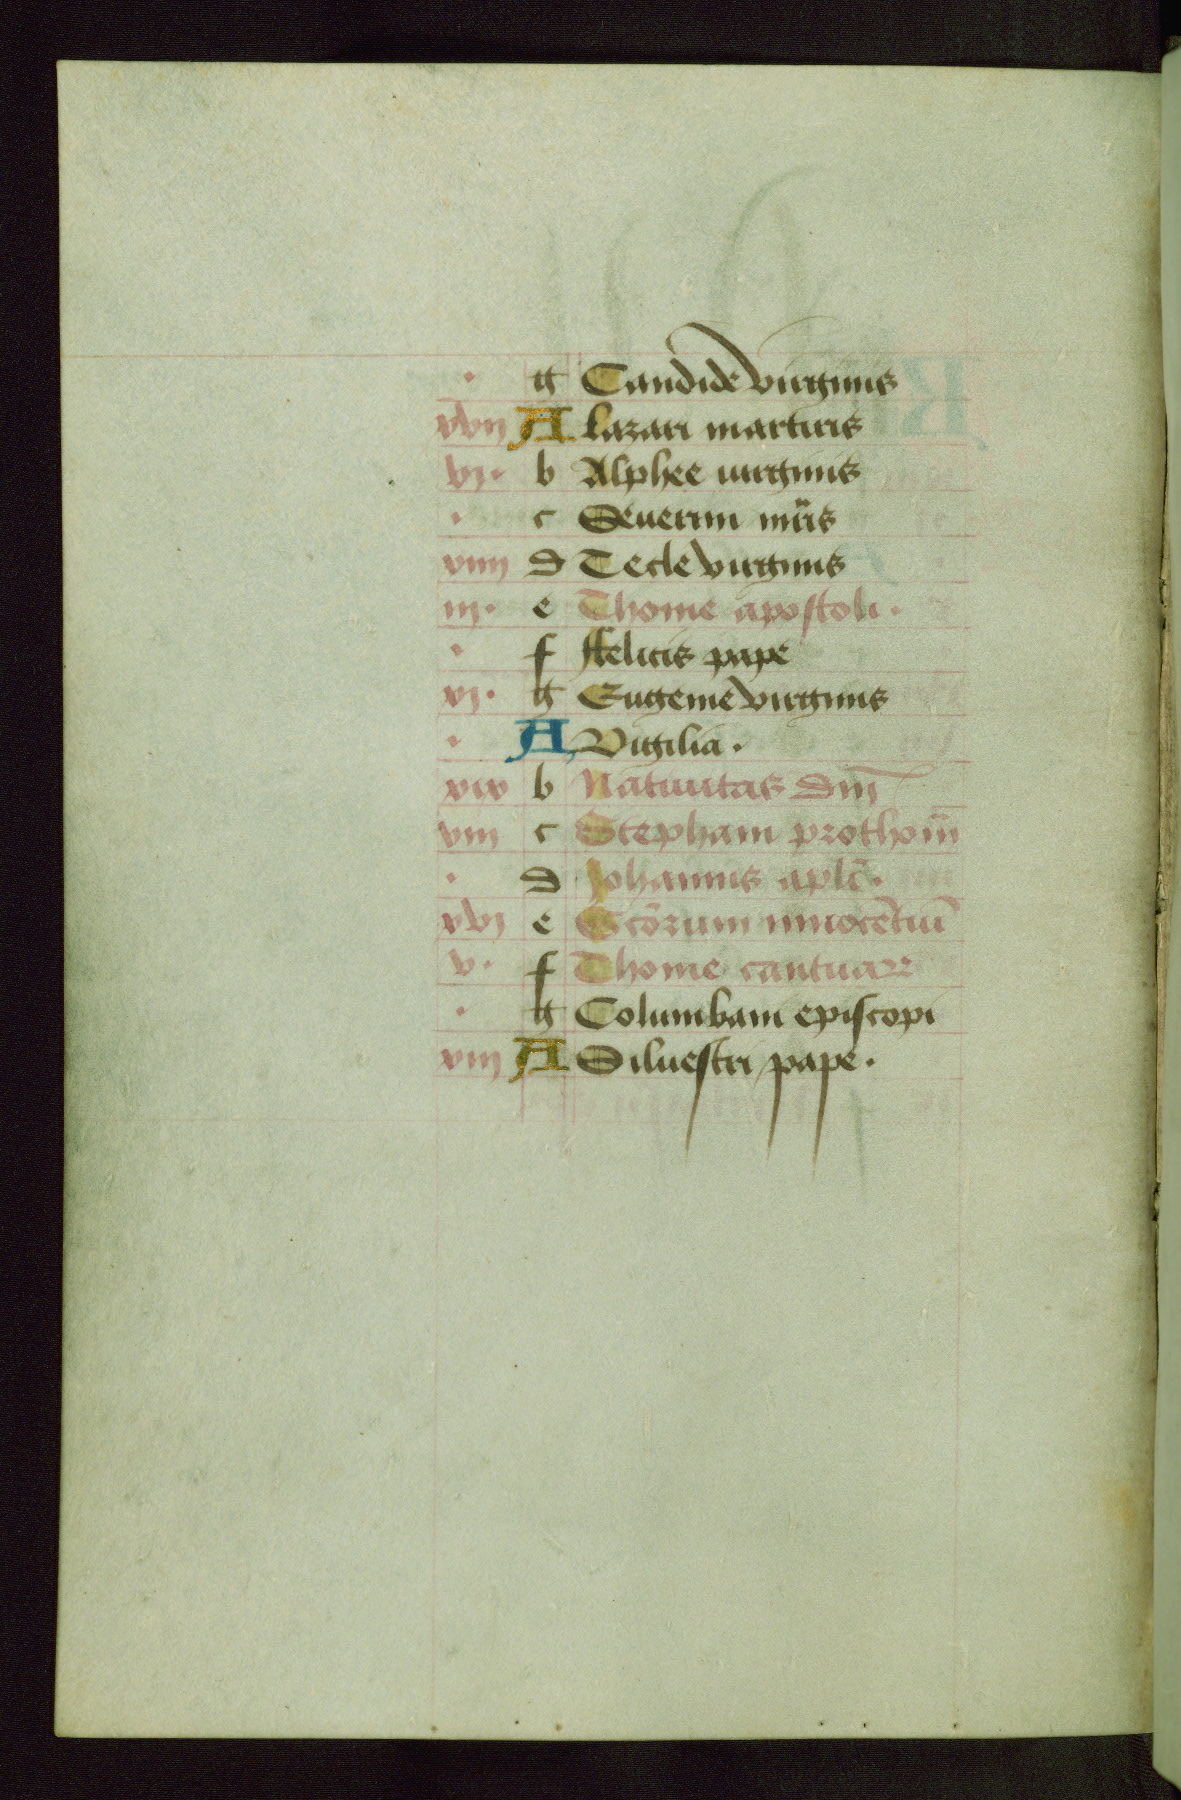 g Candide virginis
xvii A Lazari martiris
vi. b Alphee uirginis
c Seuerini mr̄is
xiiii d Tecle virginis
iii. e Thome apostoli.
f ffelicis pape
xi. g Eugenie virginis
A Vigilia.
xix b Natiuitas dn̄i
viii c Stephani prothom̄
d Johannis apl̄i.
xvi e Scōrum innocētiū
v. f Thome cantuar
g Columbani episcopi
xiii A Siluestri pape.